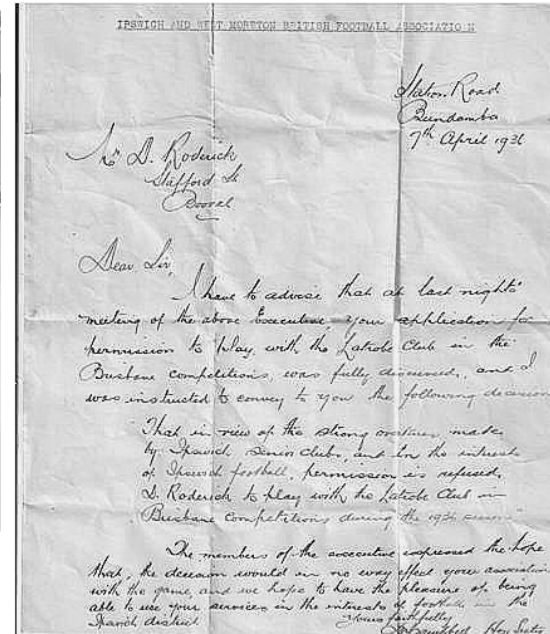 IPSWICH AND WEST MORETON BRITISH FOOTBALL ASSOCIATION
Station Road
Bundamba
7th April 1936
Mr D. Roderick
Stafford St
Booval
Dear Sir,
I have to advise that at last night's
meeting of the above Executive, your application for
permission to play with the Latrobe Club in the
Brisbane competitions, was fully discussed, and I
was instructed to convey to you the following decision
"That in view of the strong made
by Ipswich senior clubs, and in the interests
of Ipswich football, permission is refused,
D. Roderick to play with the Latrobe Club in
Brisbane Competitions during the 1936 season"
The members of the executive expressed the hope
that, the decision would in no way effect your association
with the game, and we hope to have the pleasure of being
able to use your services in the interests of football in the
Ipswich district.
Yours faithfully
Hon Secty